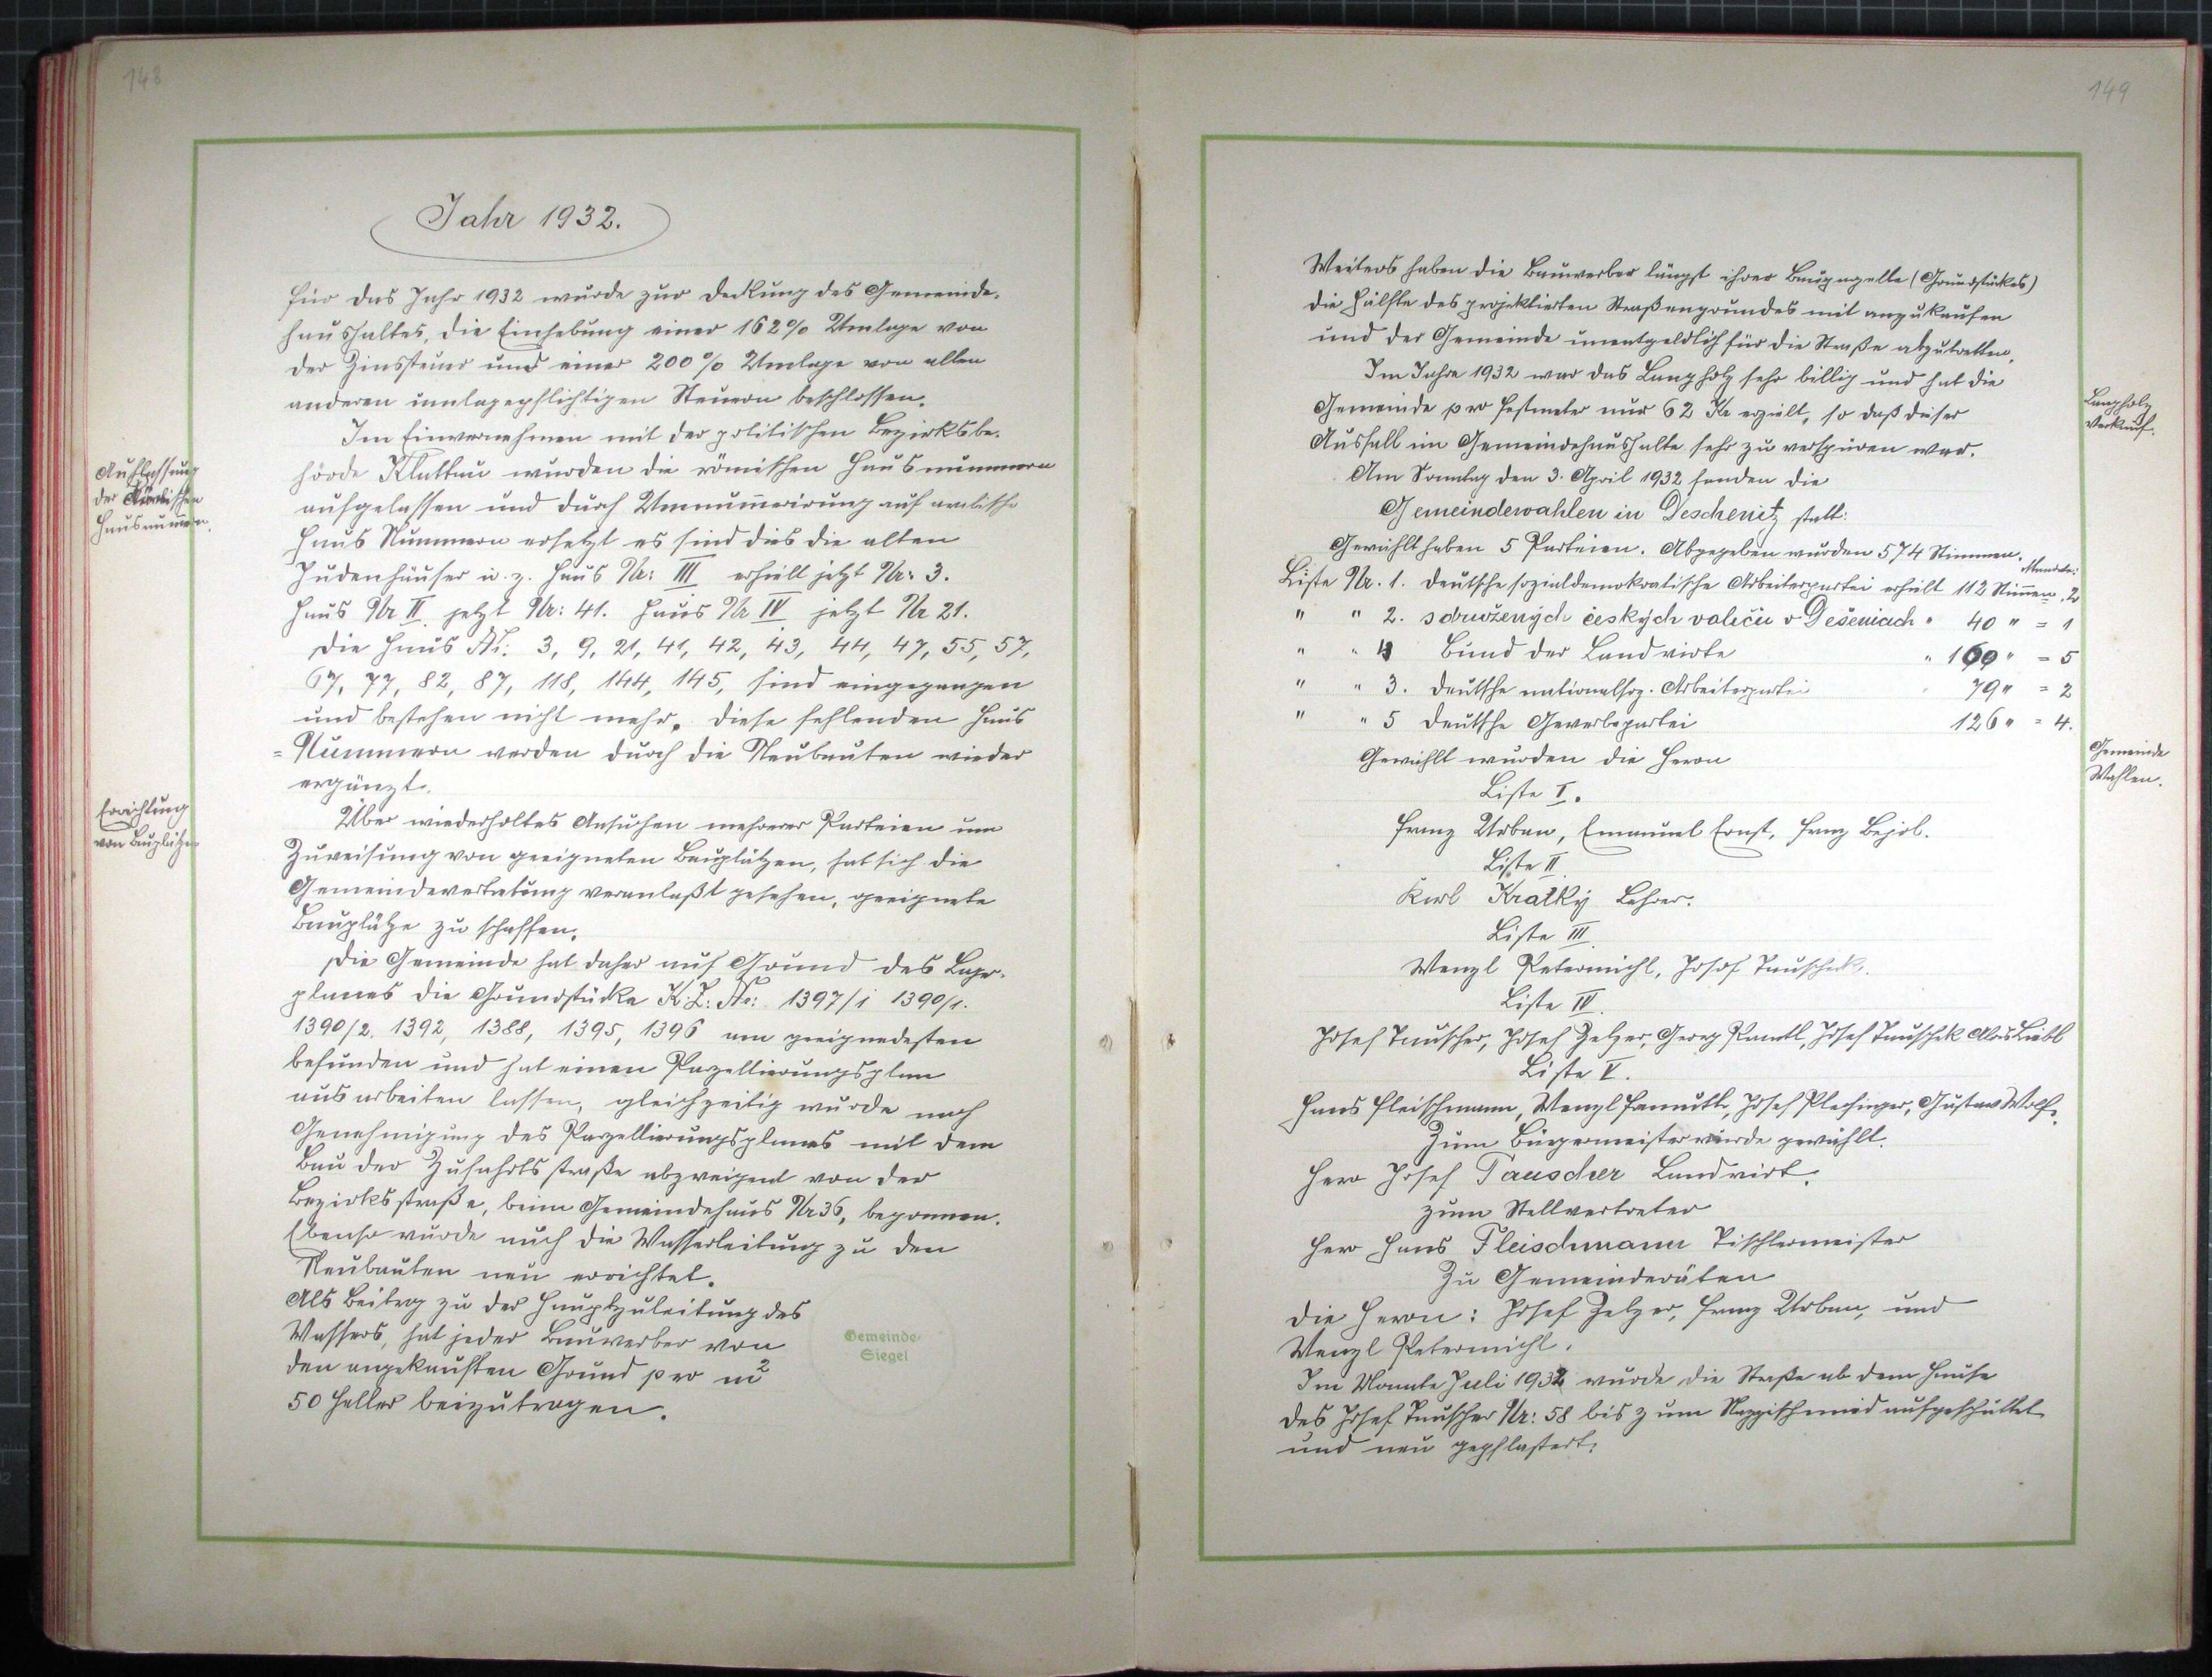 148
Jahr 1932.
Für das Jahr 1932 wurde zur Deckung des Gemeinde-
haushaltes, die Einhebung einer 162% Umlage von
der Zinssteuer und einer 200% Umlage von allen
anderen umlagepflichtigen Steuern beschlossen.
Im Einvernehmen mit der politischen Bezirksbe-
hörde Klattau wurden die römischen Hausnummern
Auflassung
der Römischen
Hausnummern.
aufgelassen und durch Umnummerirung auf arabische
Haus Nummern ersetzt es sind dies die alten
Judenhäuser u. z. Haus Nr: III erhielt jetzt Nr: 3.
Haus Nr II jetzt Nr: 41. Haus Nr IV jetzt Nr 21.
Die Haus Nr: 3, 9, 21, 41, 42, 43, 44, 47, 55, 57,
67, 77, 82, 87, 118, 144, 145, sind eingegangen
und bestehen nicht mehr. Diese fehlenden Haus
=Nummern werden durch die Neubauten wieder
ergänzt.
Errichtung
von Bauplätzen
Über wiederholtes Ansuchen mehrerer Parteien um
Zuweisung von geeigneten Bauplätzen, hat sich die
Gemeindevertretung veranlaßt gesehen, geeignete
Bauplätze zu schaffen.
Die Gemeinde hat daher auf Grund des Lage-
planes die Grundstücke K.Z: Nr: 1397/1 1390/1.
1390/2, 1392, 1388, 1395, 1396 am geeignedesten
befunden und hat einen Pazellierungsplan
ausarbeiten lassen, gleichzeitig wurde nach
Genehmigung des Parzellierungsplanes mit dem
Bau der Zufahrtsstraße abzweigent von der
Bezirksstraße, beim Gemeindehaus Nr 36, begonnen.
Ebenso wurde auch die Wasserleitung zu den
Neubauten neu errichtet.
Als Beitrag zu der Hauptzuleitung des
Wassers, hat jeder Bauwerber von
den angekauften Grund pro m²
50 Heller beizutragen.
Gemeinde-
Siegel
149
Weiters haben die Bauwerber längst ihrer Baupazelle (Grundstückes)
die Hälfte des projektierten Straßengrundes mit anzukaufen
und der Gemeinde unentgeldlich für die Straße abzutretten.
Im Jahre 1932 war das Langholz sehr billig und hat die
Gemeinde pro Festmeter nur 62 Kr erzielt, so daß dieser
Ausfall im Gemeindehaushalte sehr zu verspüren war.
Langholz
Verkauf.
Am Sonntag den 3. April 1932 fanden die
Gemeindewahlen in Deschenitz statt:
Gewählt haben 5 Parteien. Abgegeben wurden 574 Stimmen.
Mandate:
Liste Nr. 1. Deutsche sozialdemokratische Arbeiterpartei erhielt 112 Stimmen. 2
" " 2. sdružených českých voličů v Dešenicích " 40 " = 1
" " 4 Bund der Landwirte " 169 " = 5
" " 3. Deutsche nationalsoz. Arbeiterpartei 79 " = 2
" " 5 Deutsche Gewerbepartei 126 " = 4.
Gemeinde
Wahlen.
Gewählt wurden die Herrn
Liste I.
Franz Urban, Emanuel Ernst, Franz
Liste II.
Karl Kratky Lehrer.
Liste III.
Wenzl Petermichl, Josef Tauschek.
Liste IV.
Josef Tauscher, Josef Zelzer, Georg Josef Tauschek Alois Liebl
Liste V.
Hans Fleischmann, Wenzl Josef Plechinger, Gustav Wolf.
Zum Bürgermeister wurde gewählt.
Herr Josef Tauscher Landwirt.
zum Stellvertreter
Herr Hans Fleischmann Tischlermeister
Zu Gemeinderäten
die Herrn: Josef Zelzer, Franz Urban, und
Wenzl Petermichl.
Im Monate Juli 1932 wurde die Straße ab dem Hause
des Josef Tauscher Nr: 58 bis zum aufgeschüttet
und neu gepflastert.